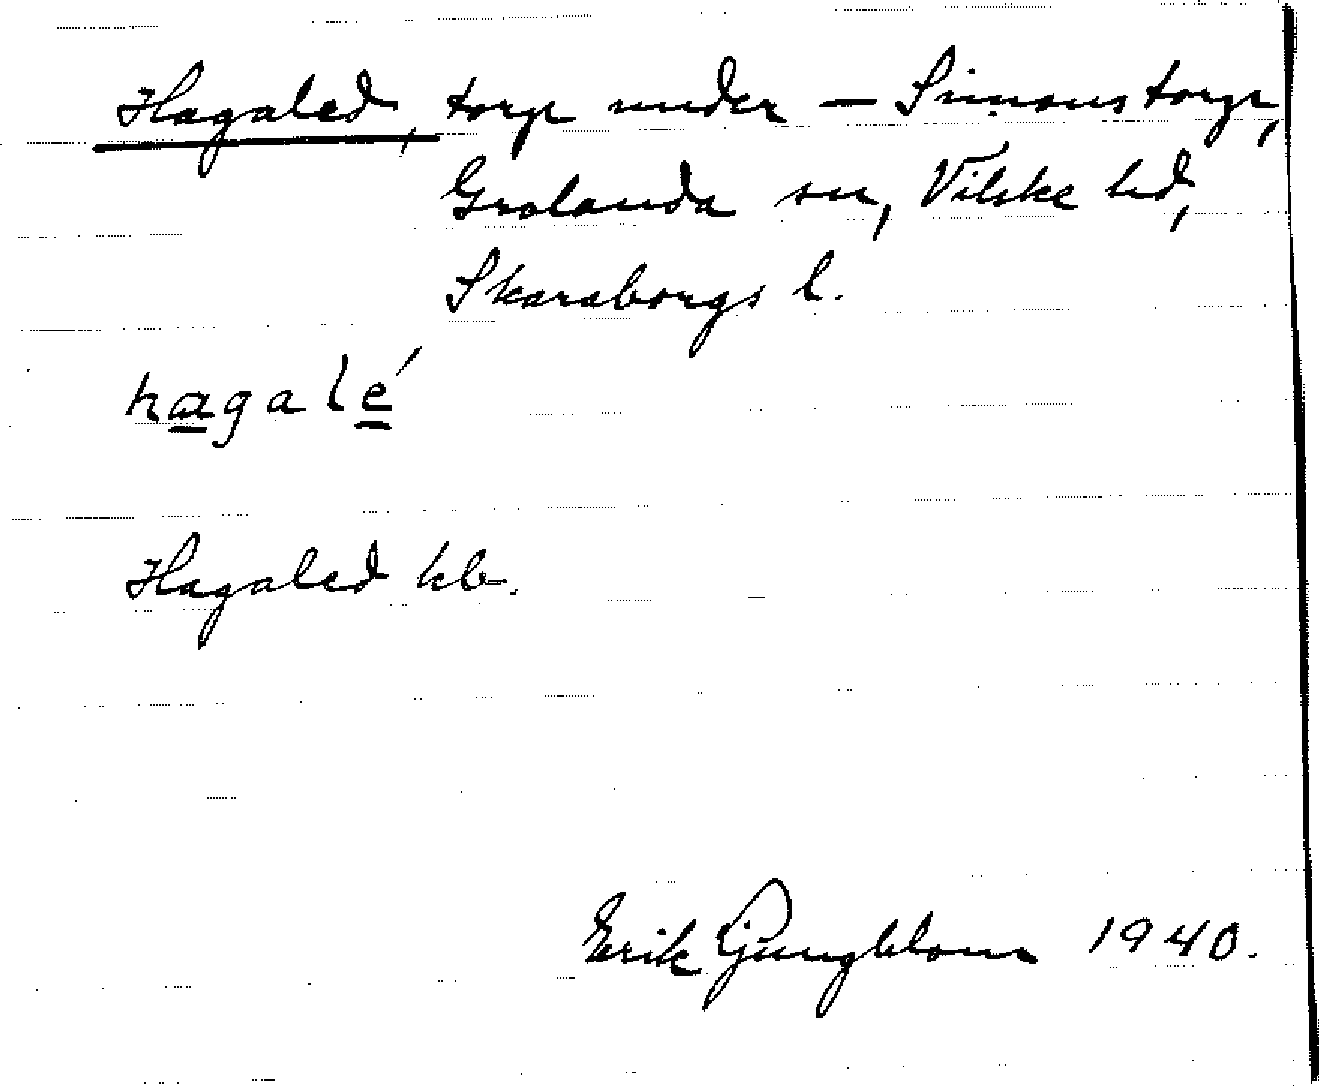 Hagaled, torp under – Simonstorp,
Grolanda sn, Vilske hd,
Skaraborgs l.
hagalé
Hagaled kb.
Erik Ljungblom 1940.